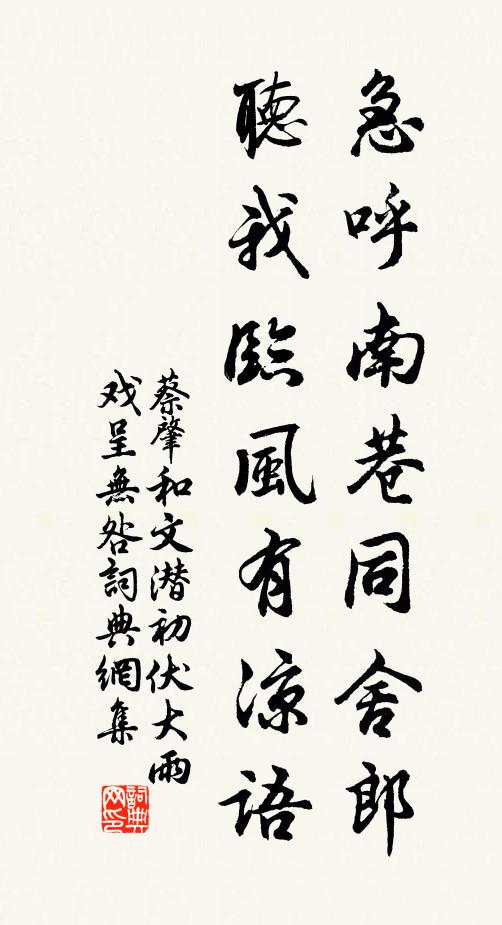 急呼南巷同舍郎
聽我臨風有涼語
蔡肇和文潜初伏大雨
戏呈無咎詞典網集
詞典
网印